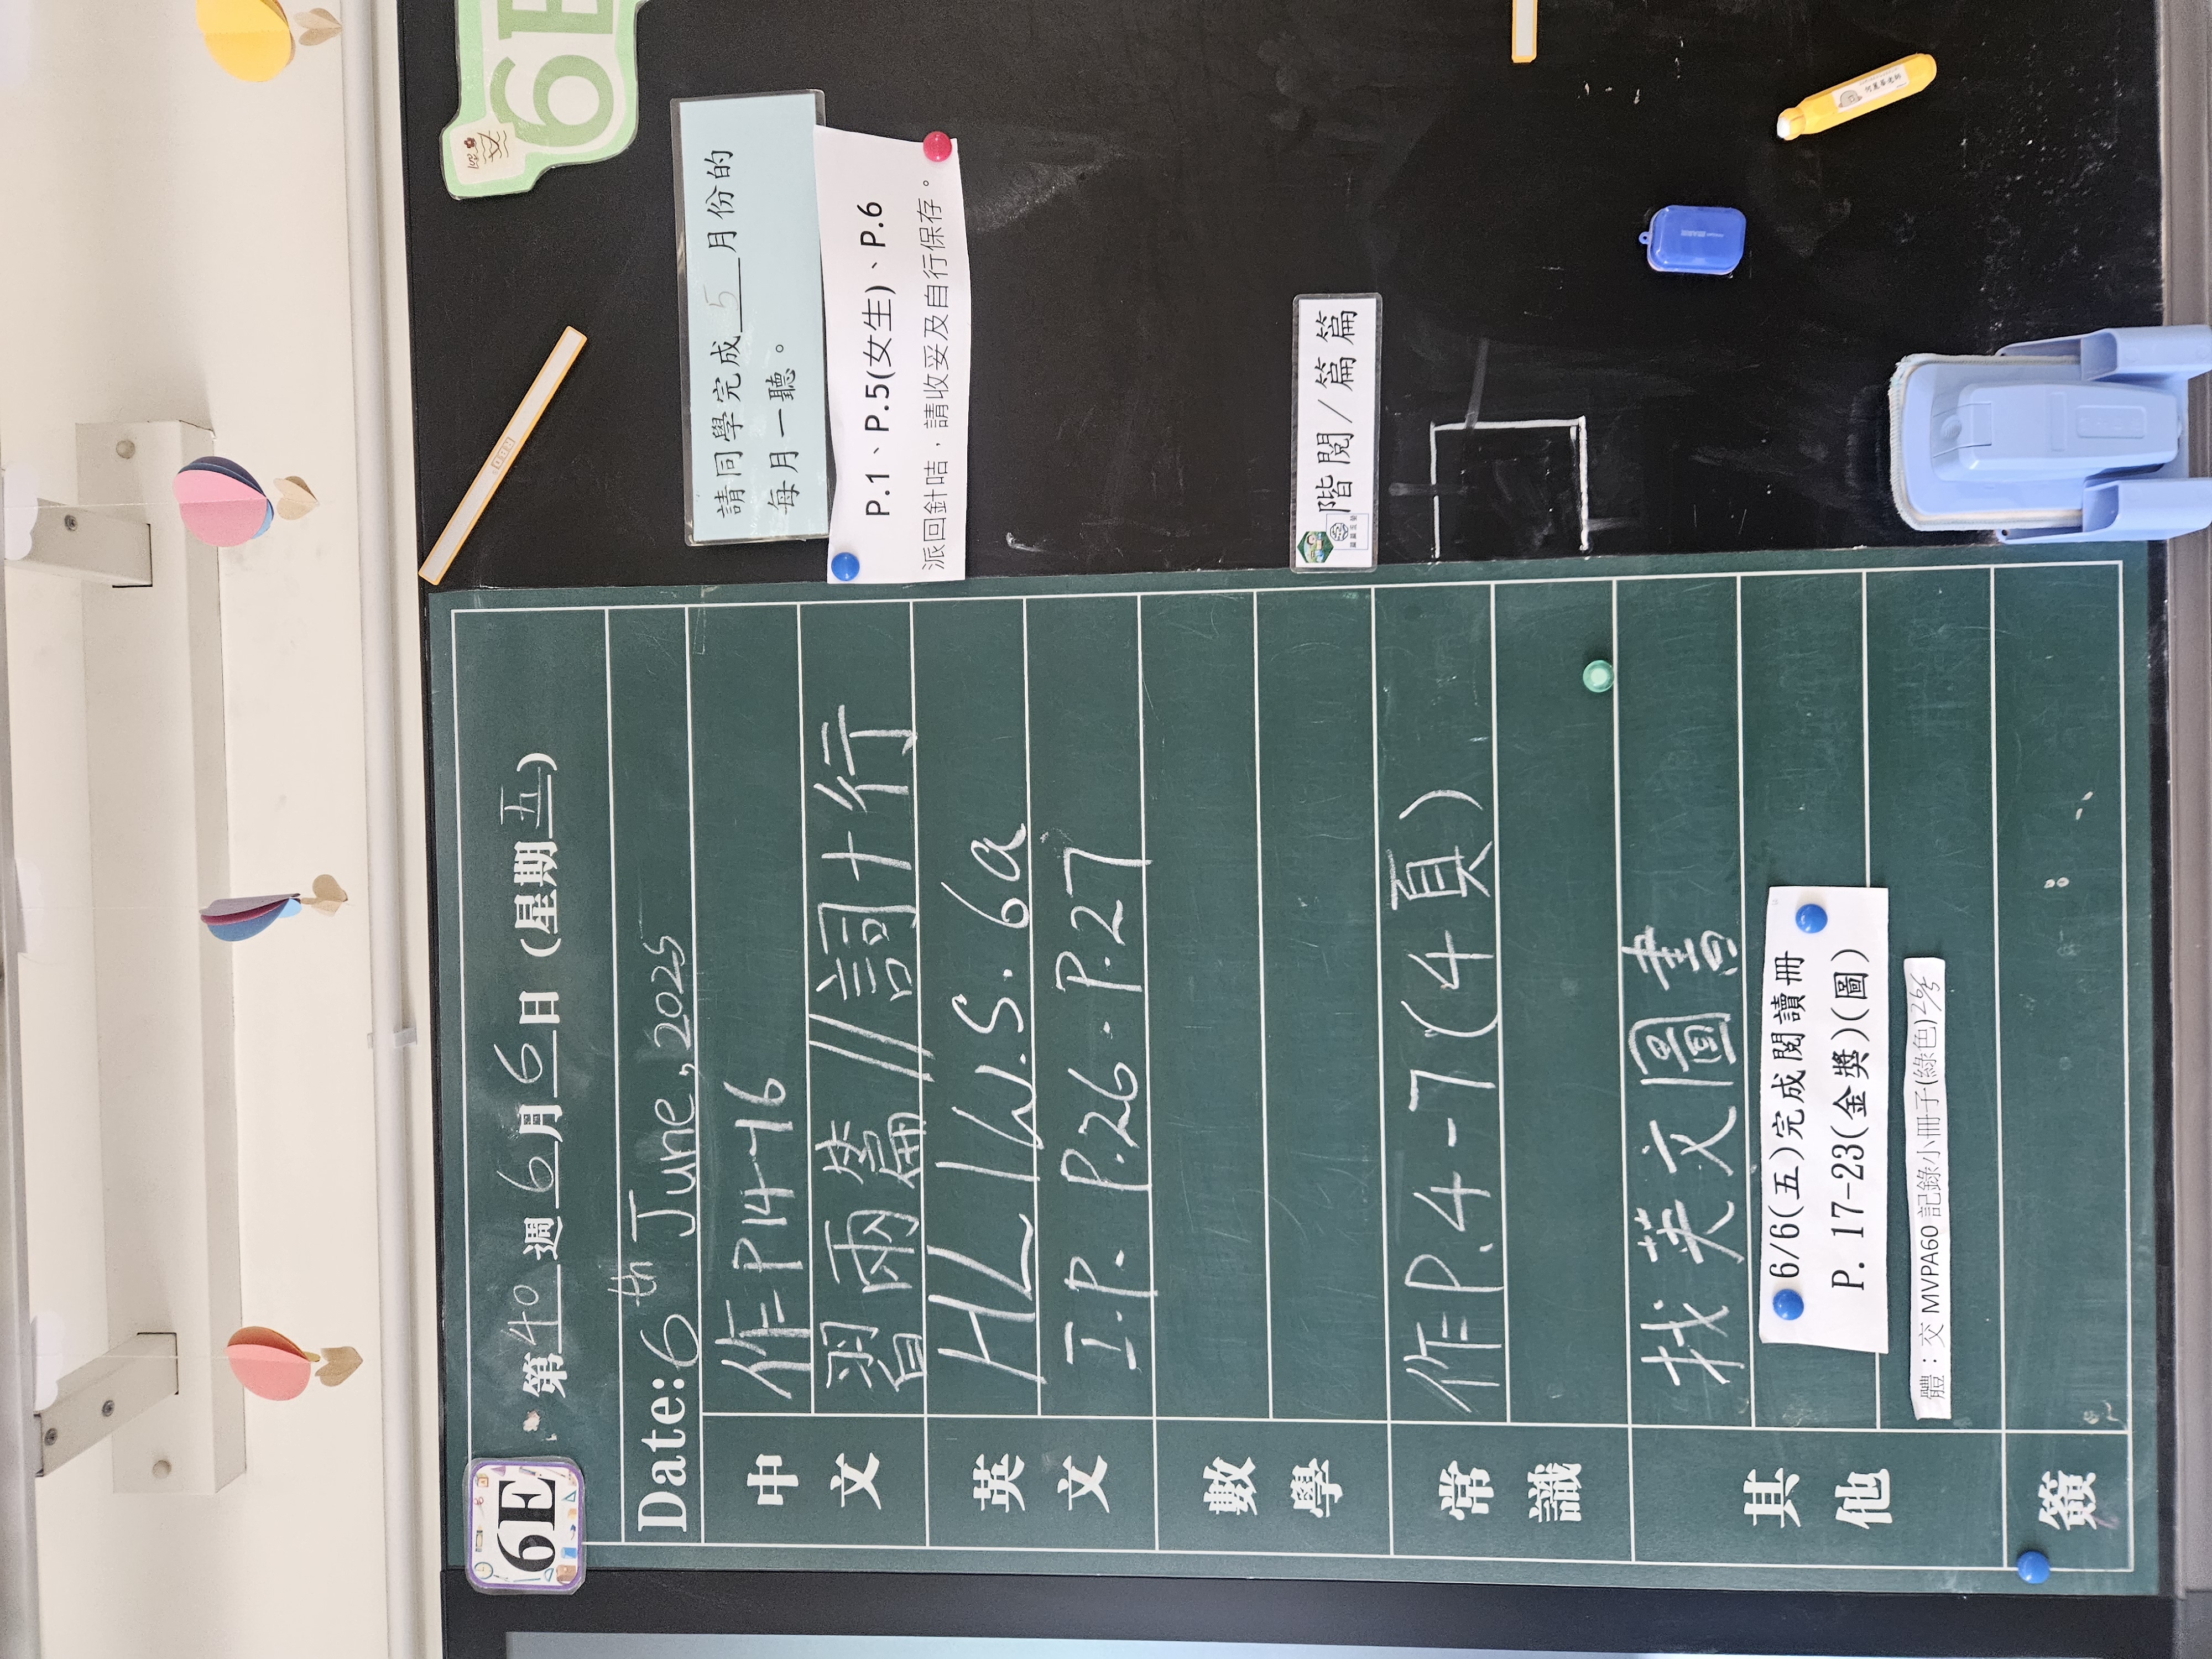 6E
第40週 6月6日 (星期五)
Date: 6th June, 2025
中文
作= P.14-16
習兩篇 // 詞十行
英文
HL | W.S. 6a
I.P. P.26 - P.27
數學
常識
作= P.4-7 (4頁)
其他
找英文圖書
6/6(五)完成閱讀冊
P. 17-23(金獎)(圖)
體：交 MVPA60 記錄小冊子(綠色) 26/5
簽
6E
請同學完成 5 月份的
每月一聽。
P.1、P.5(女生)、P.6
派回針咭，請收妥及自行保存。
階閱/篇篇篇